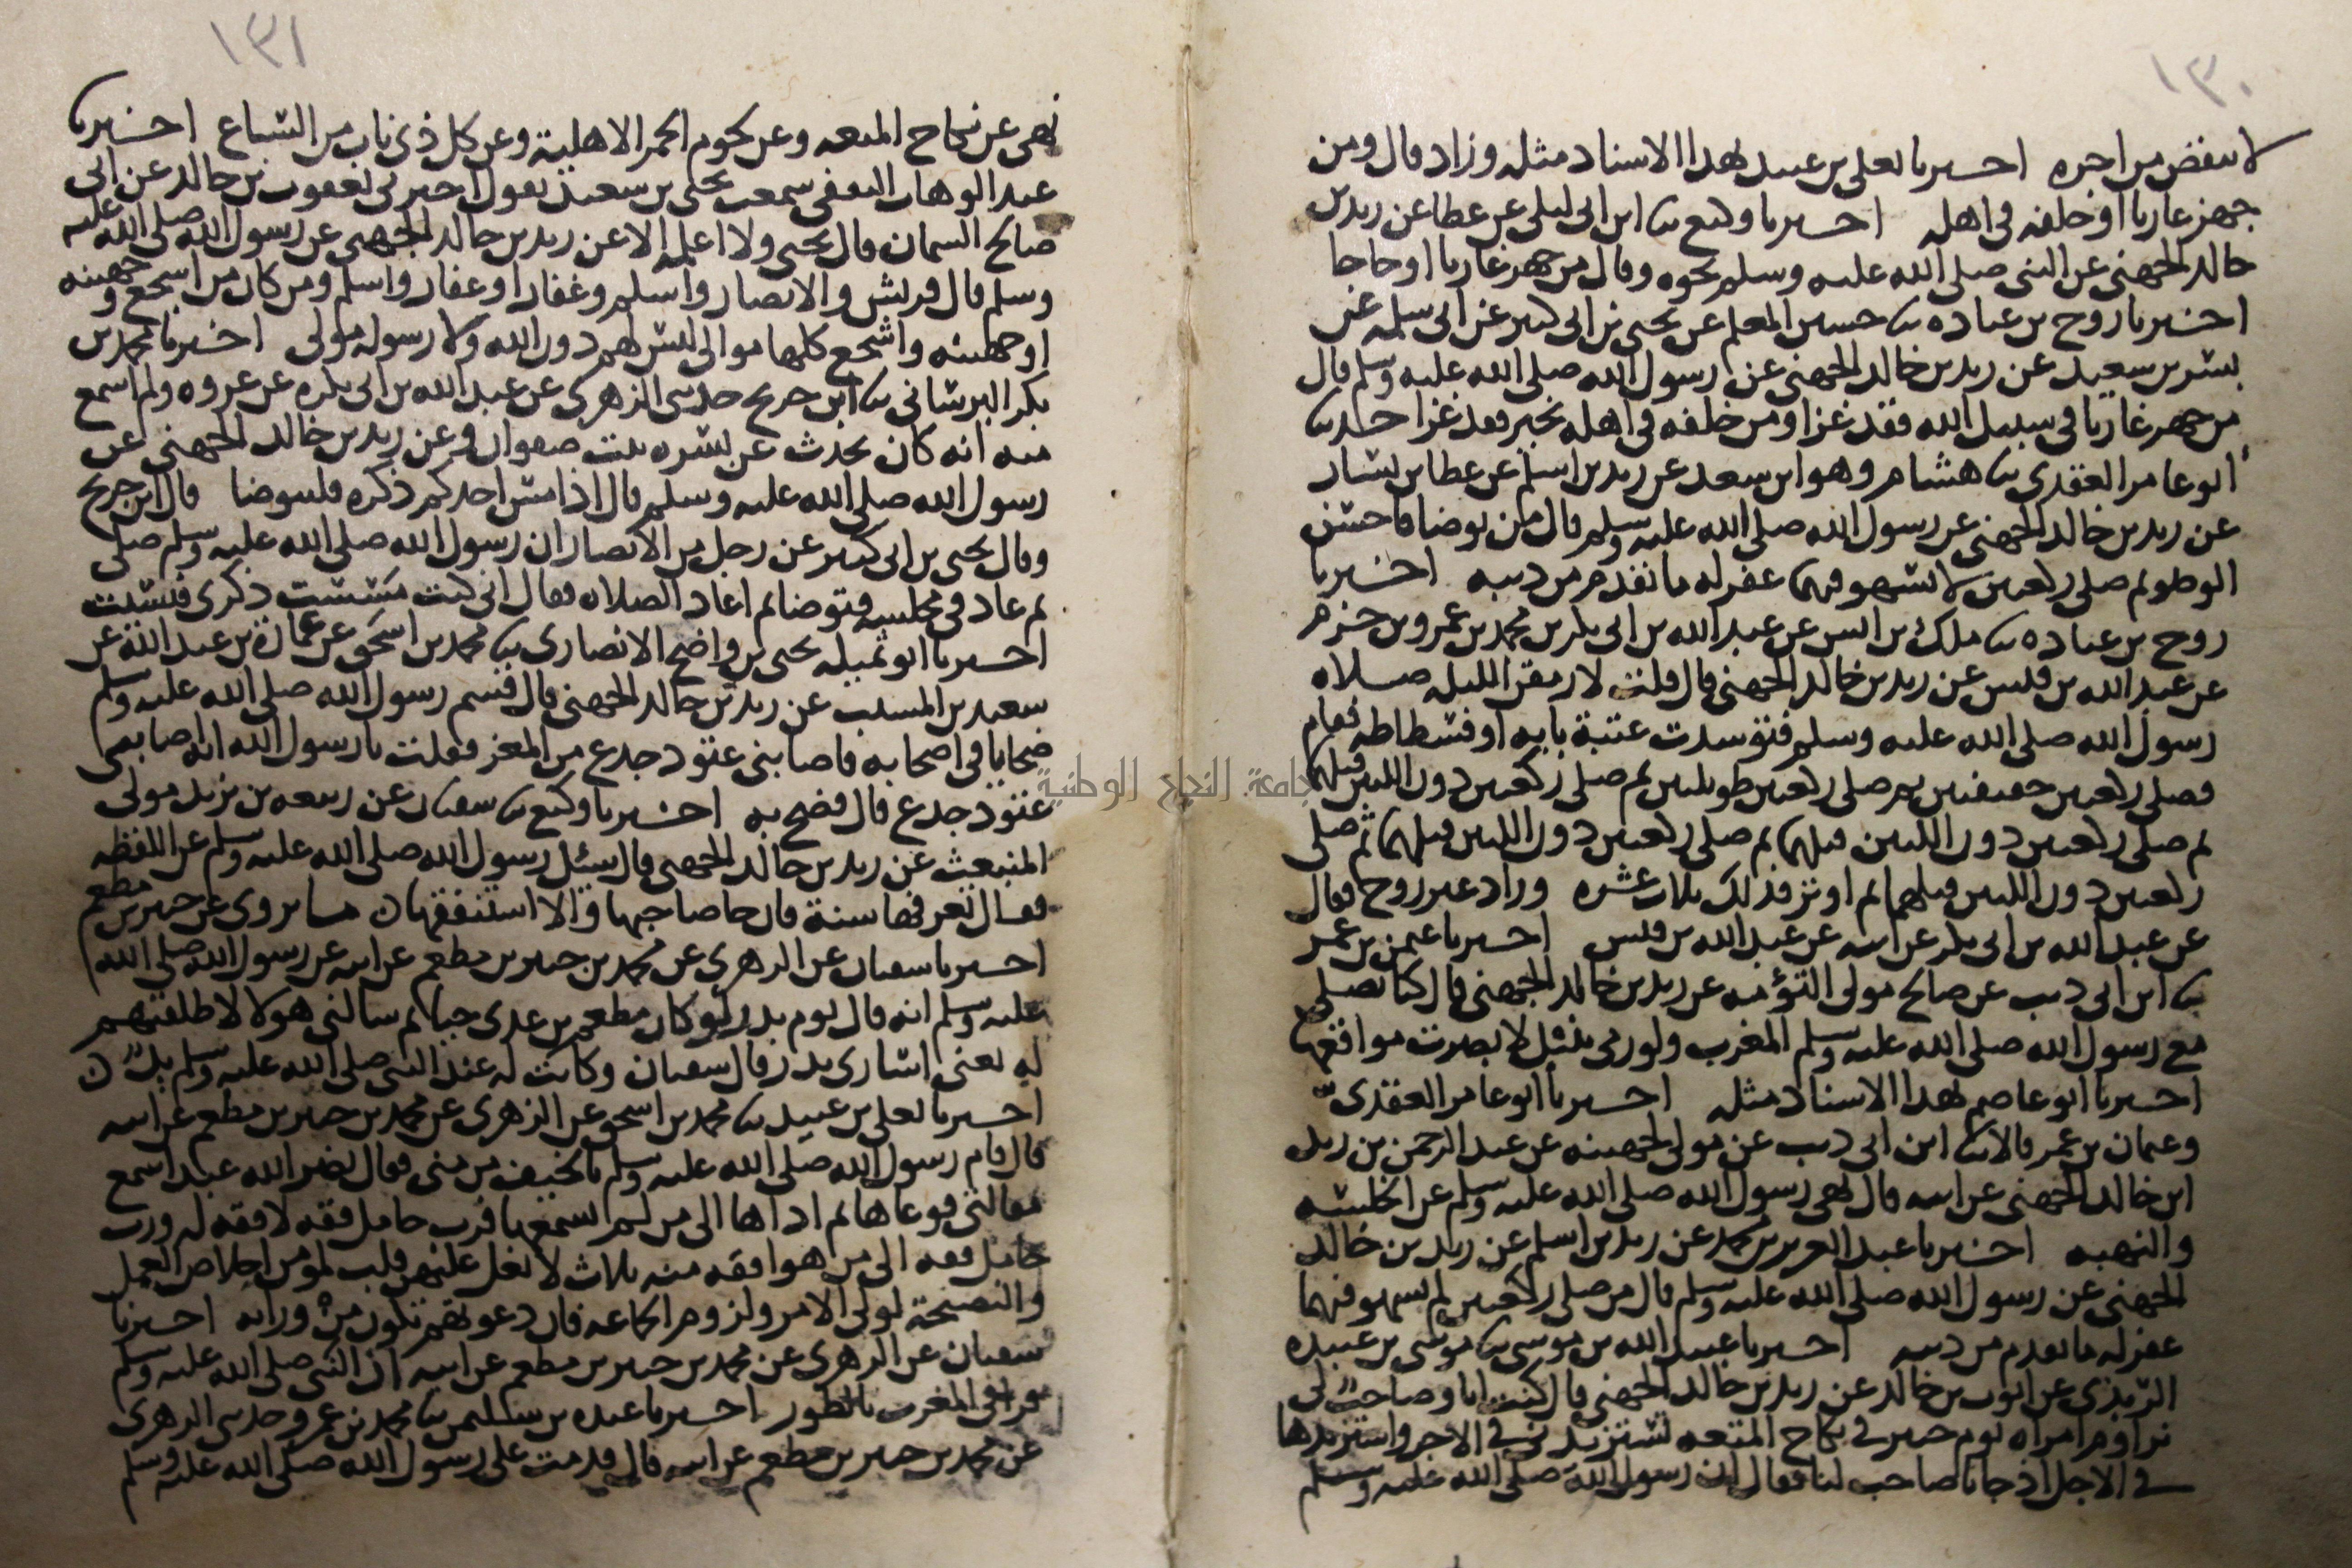 ١٣٠
لا ينقص من اجره اخبرنا يعلى بن عبيد بهذا الاسناد مثله وزاد قال ومن
جهز غازيا او خلفه في اهله اخبرنا وكيع نا ابن ابي ليلى عن عطا عن زيد بن
خالد الجهني عن النبي صلى الله عليه وسلم نحوه وقال من جهز غازيا او حاجا
اخبرنا روح بن عباده نا حسين المعلم عن يحيى بن ابي كثير عن ابي سلمه عن
بسر بن سعيد عن زيد بن خالد الجهني عن رسول الله صلى الله عليه وسلم قال
من جهز غازيا في سبيل الله فقد غزا ومن خلفه في اهله بخير فقد غزا حدثنا
ابو عامر العقدي نا هشام وهو ابن سعد عن زيد بن اسلم عن عطا بن يسار
عن زيد بن خالد الجهني عن رسول الله صلى الله عليه وسلم قال من توضا فاحسن
الوضو ثم صلى ركعتين لا يسهو فيهما غفر له ما تقدم من ذنبه اخبرنا
روح بن عباده نا ملك بن انس عن عبد الله بن ابي بكر بن محمد بن عمرو بن حزم
عن عبد الله بن قيس عن زيد بن خالد الجهني قال قلت لارمقن الليله صلاه
رسول الله صلى الله عليه وسلم فتوسدت عتبة بابه او فسطاطه فقام
فصلى ركعتين خفيفتين ثم صلى ركعتين طويلتين ثم صلى ركعتين دون اللتين قبلهما
ثم صلى ركعتين دون اللتين قبلهما ثم صلى ركعتين دون اللتين قبلهما ثم صلى
ركعتين دون اللتين قبلهما ثم اوتر فذلك ثلاث عشره وزاد غير روح فقال
عن عبد الله بن ابي بكر عن ابيه عن عبد الله بن قيس اخبرنا عثمن بن عمر
نا ابن ابي ذيب عن صالح مولى التؤمه عن زيد بن خالد الجهني قال كنا نصلي
مع رسول الله صلى الله عليه وسلم المغرب ولو رمي بنبل لابصرت مواقعها
اخبرنا ابو عاصم بهذا الاسناد مثله اخبرنا ابو عامر العقدي
وعثمان بن عمر قالا نا ابن ابي ذيب عن مولى الجهينه عن عبد الرحمن بن زيد
ابن خالد الجهني عن ابيه قال نهى رسول الله صلى الله عليه وسلم عن الخليسه
والنهبه اخبرنا عبد العزيز بن محمد عن زيد بن اسلم عن زيد بن خالد
الجهني عن رسول الله صلى الله عليه وسلم قال من صلى ركعتين لم يسهو فيهما
غفر له ما تقدم من ذنبه اخبرنا عبيد الله بن موسى نا موسى بن عبيده
الربذي عن ايوب بن خالد عن زيد بن خالد الجهني قال كنت انا وصاحب لي
نراوم امراه يوم خيبر في نكاح المتعه تستزيدني في الاجر واستزيدها
في الاجل اذ جانا صاحب لنا فقال ان رسول الله صلى الله عليه وسلم
١٣١
نهى عن نكاح المتعه وعن لحوم الحمر الاهلية وعن كل ذي ناب من السباع اخبرنا
عبد الوهاب الثقفي سمعت يحيى بن سعيد يقول اخبرني يعقوب بن خالد عن ابي
صالح السمان قال يحيى ولا اعلمه الا عن زيد بن خالد الجهني عن رسول الله صلى الله عليه
وسلم قال قريش والانصار واسلم وغفار او غفار واسلم ومن كان من اشجع وجهينه
او جهينه واشجع كلها موالي ليس لهم دون الله ولا رسوله مولى اخبرنا محمد بن
بكر البرساني نا ابن جريج حدثني الزهري عن عبد الله بن ابي بكره عن عروه ولم اسمع
منه انه كان يحدث عن بسره بنت صفوان وعن زيد بن خالد الجهني عن
رسول الله صلى الله عليه وسلم قال اذا مس احدكم ذكره فليتوضا قال ابن جريج
وقال يحيى بن ابي كثير عن رجل من الانصار ان رسول الله صلى الله عليه وسلم صلى
ثم عاد في مجلسه فتوضا ثم اعاد الصلاه فقال اني كنت مسست ذكري فنسيت
اخبرنا ابو تميله يحيى بن واضح الانصاري نا محمد بن اسحق عن عمارة بن عبد الله عن
سعيد بن المسيب عن زيد بن خالد الجهني قال قسم رسول الله صلى الله عليه وسلم
ضحايا في اصحابه فاصابني عتود جذع من المعز فقلت يا رسول الله انه اصابني
عتود جذع قال فضح به اخبرنا وكيع نا سفيان عن ربيعه بن يزيد مولى
المنبعث عن زيد بن خالد الجهني قال سئل رسول الله صلى الله عليه وسلم عن اللقطه
فقال تعرفها سنة فان جا صاحبها والا استنفقها ما يروى عن جبير بن مطعم
اخبرنا سفيان عن الزهري عن محمد بن جبير بن مطعم عن ابيه عن رسول الله صلى الله
عليه وسلم انه قال يوم بدر لو كان مطعم بن عدي حيا ثم سالني هولا لاطلقتهم
له يعني اسارى بدر قال سفيان وكانت له عند النبي صلى الله عليه وسلم يد
اخبرنا يعلى بن عبيد نا محمد بن اسحق عن الزهري عن محمد بن جبير بن مطعم عن ابيه
قال قام رسول الله صلى الله عليه وسلم بالخيف من منى فقال نضر الله عبدا سمع
مقالتي فوعاها ثم اداها الى من لم يسمعها فرب حامل فقه لا فقه له ورب
حامل فقه الى من هو افقه منه ثلاث لا يغل عليهن قلب مؤمن اخلاص العمل
والنصيحة لولي الامر ولزوم الجماعه فان دعوتهم تكون من ورائه اخبرنا
سفيان عن الزهري عن محمد بن جبير بن مطعم عن ابيه ان النبي صلى الله عليه وسلم
قرا في المغرب بالطور اخبرنا عبده بن سليمن نا محمد بن عمرو حدثني الزهري
عن محمد بن جبير بن مطعم عن ابيه قال قدمت على رسول الله صلى الله عليه وسلم
جامعة النجاح الوطنية